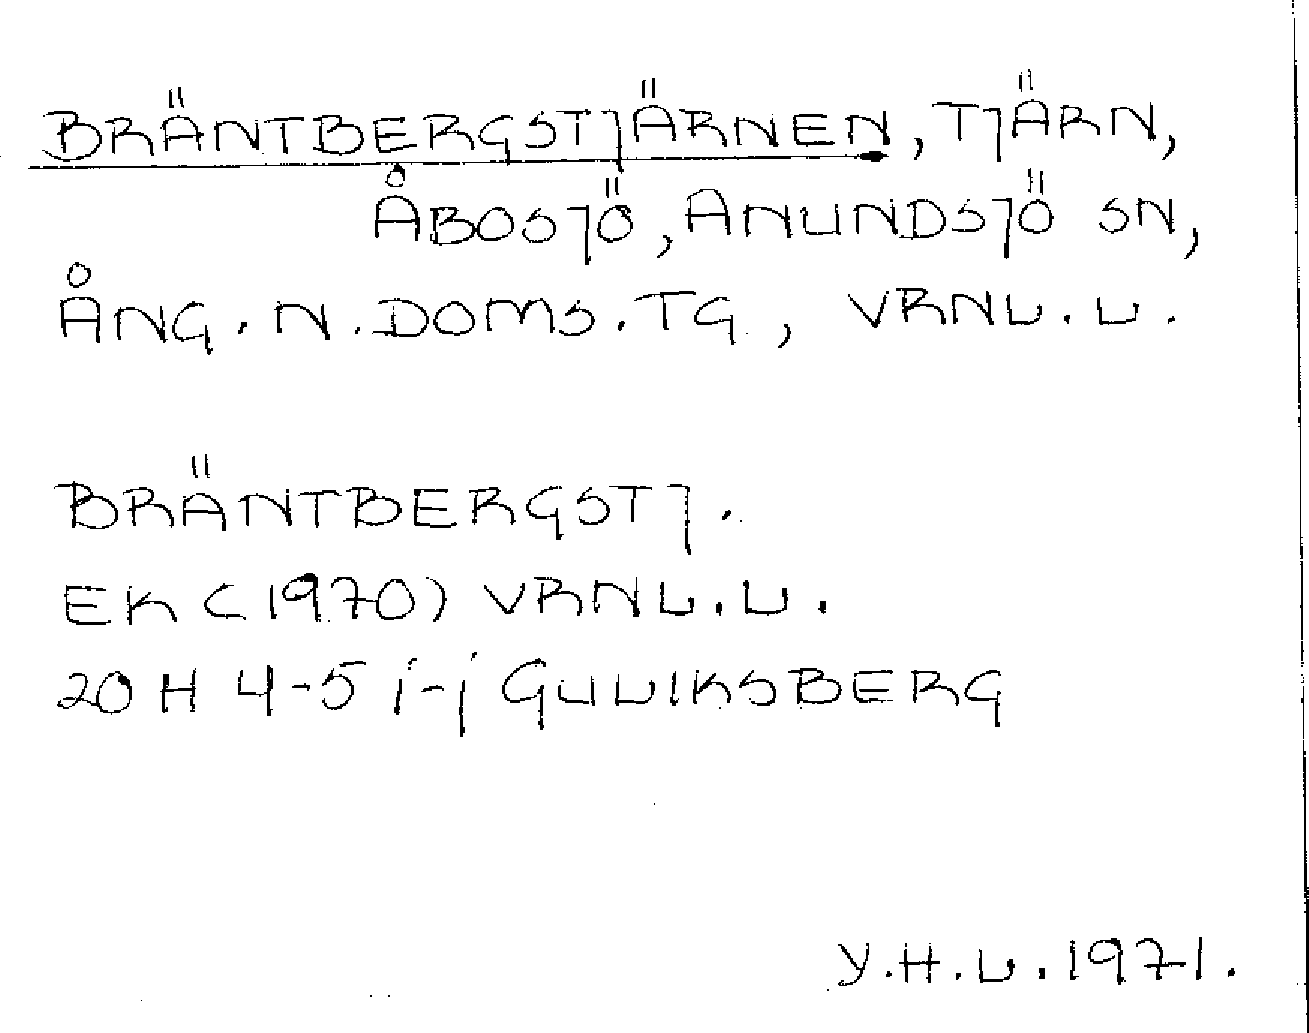 BRÄNTBERGSTJÄRNEN, TJÄRN,
ÅBOSJÖ, ANUNDSJÖ SN,
ÅNG. N. DOMS. TG., VRNL. L.
BRÄNTBERGSTJ.
EK (1970) VRNL. L.
20 H 4-5 i-j GULLIKSBERG
Y.H.L. 1971.